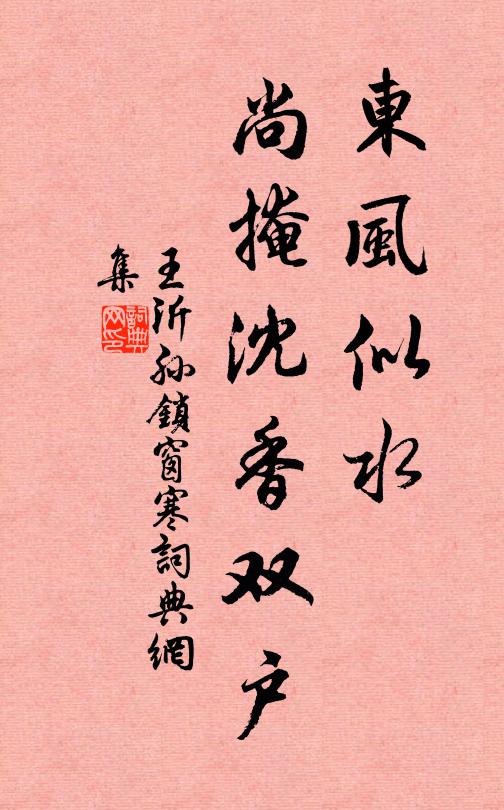 東風似水
尚掩沈香双户
王沂孙鎖窗寒詞典網
集
詞典
网印